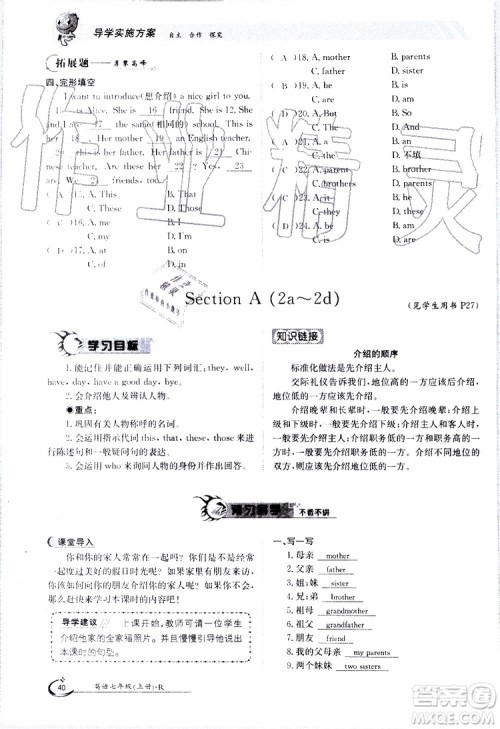 导学实施方案 自主 合作 探究
拓展题——勇攀高峰
四、完形填空
I want to introduce(想介绍) a nice girl to you.
is Alice. She is 16 friend. She is 12. She
the same(相同的) school. Her mother
18 an English teacher.
her father. Her father is
Chi-
nese teacher. These are her 22. Yes, 23
are. We 2 friends, too.
( A )15. A. This B. That
C. These D. Those
A. me B. I
C. my D. I'm
( D )17. A. at B. on
C. of D. in
( A ) A. mother B. mothers
C. father D. fathers
( D ) A. But B. So
C. Or D. And
( A )20. A. is B. am
C. are D. be
B. an
C. the D. 不填
( C ) A. parent B. parents
C. brothers D. brother
B. these
C. they D. those
( C )24. A. is B. am
C. are D. be
Section A (2a～2d)
(见学生用书 P27)
学习目标
1. 能正确理解并能正确运用下列词汇:they, well,
have, day, have a good day, bye.
2. 会介绍他人及辨认人物。
●重点:
1. 巩固有关人物称呼的名词。
2. 会运用指示代词 this, that, these, those 来进
行陈述句和一般疑问句的表达。
3. 会运用 who 来询问人物的身份并作出回答。
知识链接
介绍的顺序
标准化做法是先介绍主人。
交际礼仪告诉我们,地位低的一方应该后介绍,
地位高的一方应该先介绍。
介绍晚辈和长辈时,一般要先介绍晚辈;介绍上
级和下级时,一般要先介绍下级;介绍主人和客人时,
一般要先介绍主人;介绍职务低的一方和职务高的一
方时,一般要先介绍职务低的。
预习导学 不看不讲
课堂导入
你和你的朋友在假日里经常做些什么呢?你的
家人是如何度过美好的假日时光呢?你想把你的家
人介绍给你的朋友或者把你的朋友介绍给家人吗?
那么赶快来学习本课时的内容吧!
导学建议 上课开始,教师可以利用一位学生
介绍他家的全家福照片。并且需要引导他说出
本课时的句型。
一、写一写
1. 母亲 mother
2. 父亲 father
3. 姐;妹 sister
4. 兄;弟 brother
5. 祖母 grandmother
6. 祖父 grandfather
7. 朋友 friend
8. 我的父母亲 my parents
9. 两个姊妹 two sisters
40 英语七年级(上册)·R
作业精灵